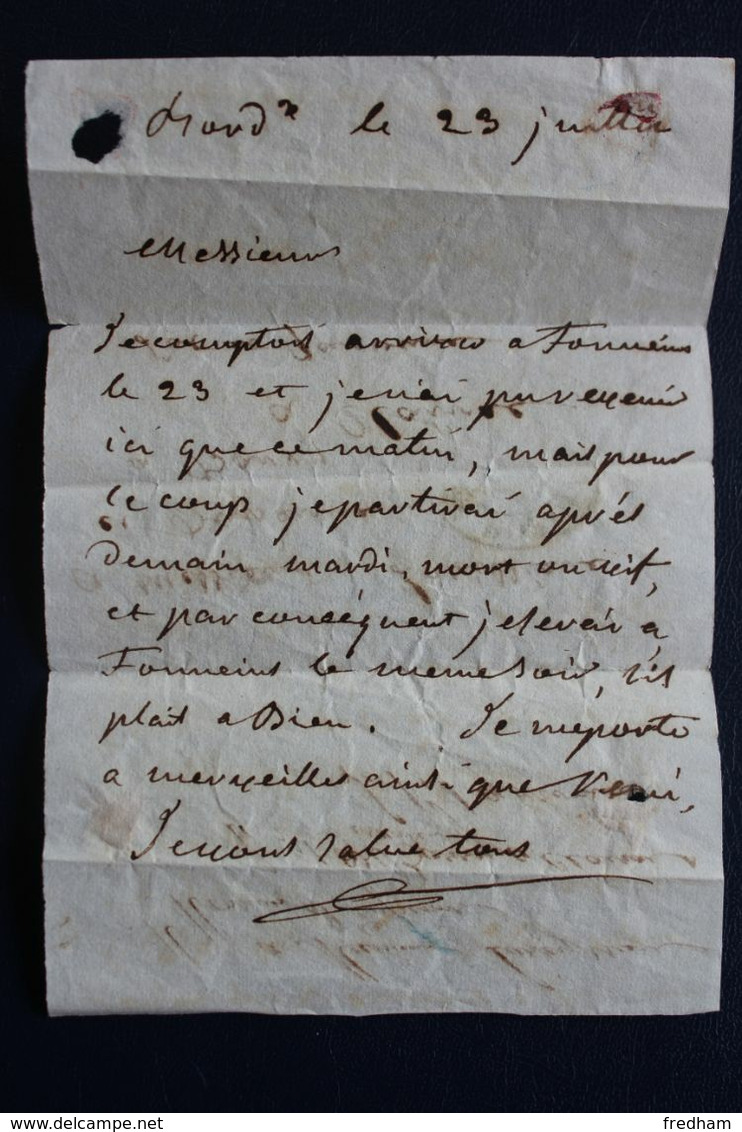 Bord.x le 23 juillet
Messieurs
Je comptois arriver a Tonneins
le 23 et je n'ai pu revenir
ici que ce matin, mais pour
le coup je partirai aprés
demain mardi, mort ou vif,
et par conséquent je serai a
Tonneins le meme soir, s'il
plait a Dieu. Je me porte
a merveilles ainsi que
Je vous salue tous
delcampe.net
fredham